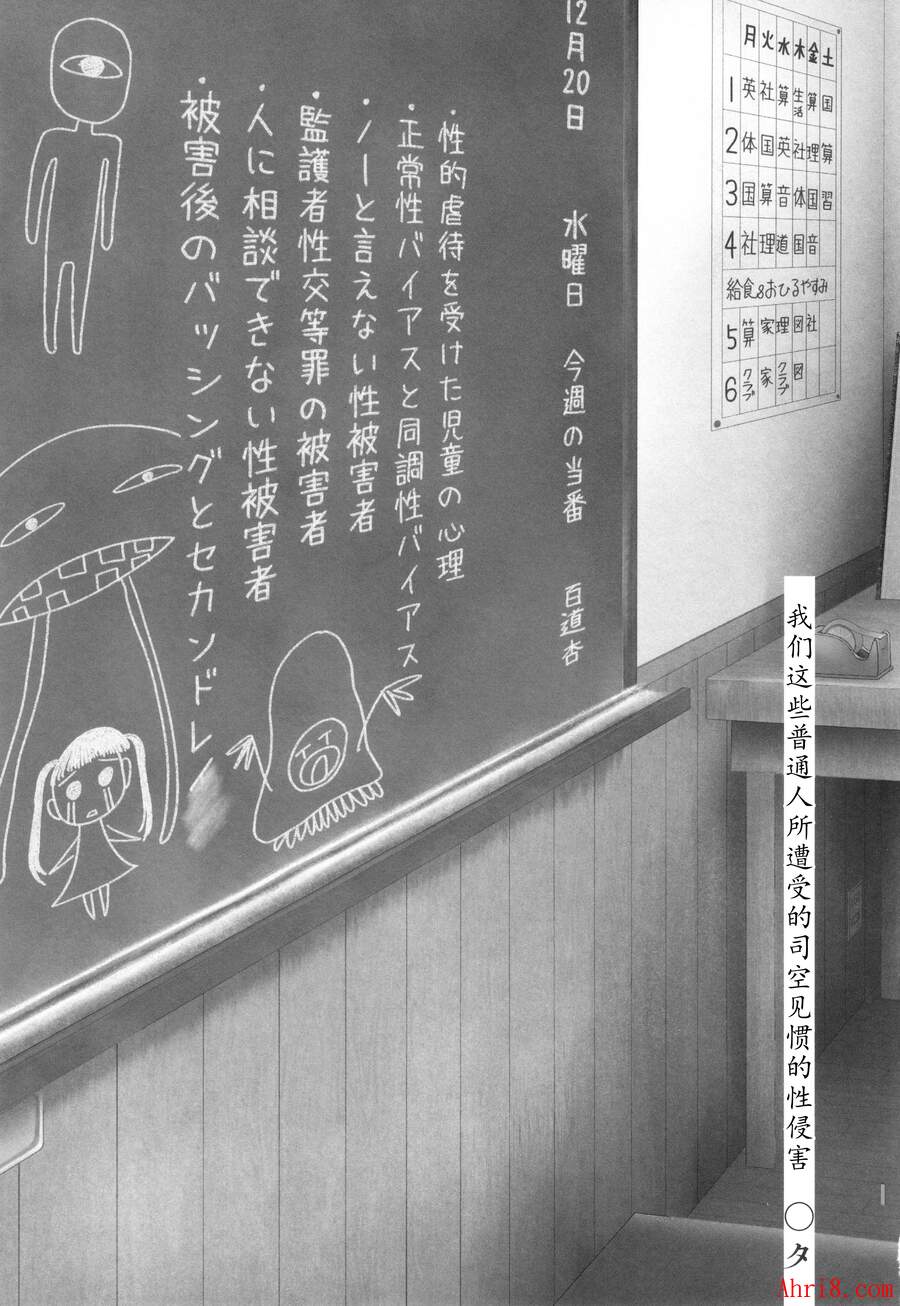 12月20日 水曜日 今週の当番 百道杏
・性的虐待を受けた児童の心理
・正常性バイアスと同調性バイアス
・ノーと言えない性被害者
・監護者性交等罪の被害者
・人に相談できない性被害者
・被害後のバッシングとセカンドレ
月火水木金土
1英社算生活算国
2体国英社理算
3国算音体国習
4社理道国音
給食&おひるやすみ
5算家理図社
6クラブ家クラブ図
我们这些普通人所遭受的司空见惯的性侵害 ◯タ
Ahri8.com